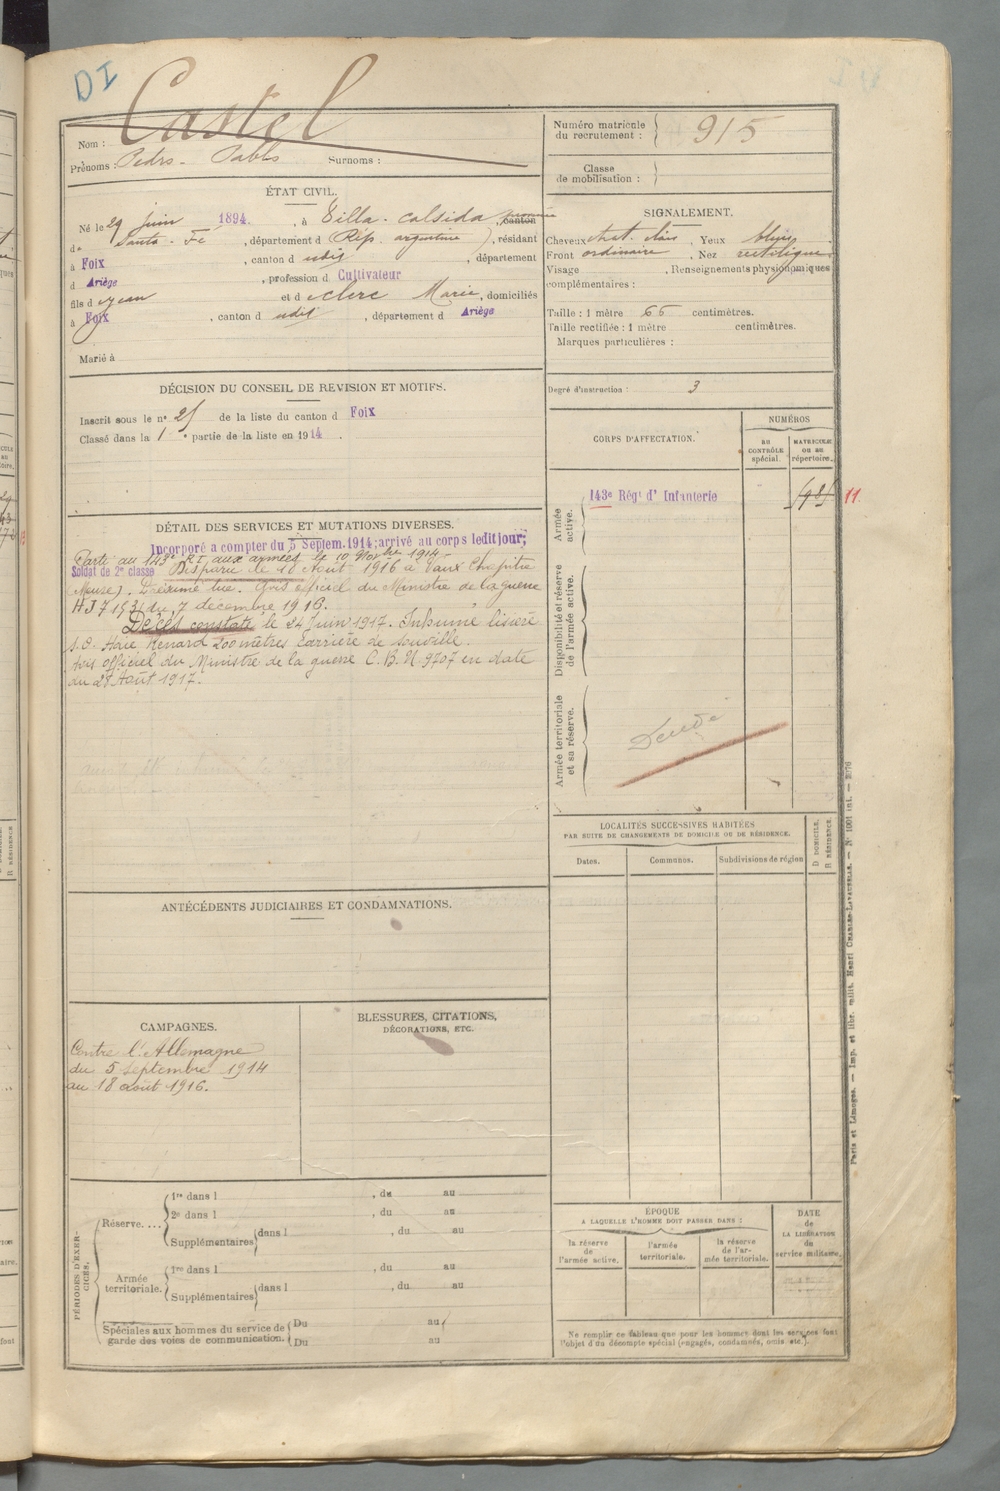 DI
Castel
Nom :
Prénoms : Pedro - Pablo Surnoms :
Numéro matricule
du recrutement : 915
Classe
de mobilisation :
ÉTAT CIVIL.
Né le 29 juin 1894. , à Villa - calsida province canton
de Santa - Fé , département d Rép. argentine ) , résidant
à Foix , canton d udit , département
d Ariège , profession d Cultivateur
fils d e Jean et d e clerc Marie , domiciliés
à Foix , canton d udit , département d Ariège
Marié à
SIGNALEMENT.
Cheveux chat. clairs , Yeux bleus
Front ordinaire , Nez rectiligne
Visage , Renseignements physionomiques
complémentaires :
Taille : 1 mètre 66 centimètres.
Taille rectifiée : 1 mètre centimètres.
Marques particulières :
Degré d'instruction : 3
DÉCISION DU CONSEIL DE REVISION ET MOTIFS.
Inscrit sous le n° de la liste du canton d Foix
Classé dans la 1e partie de la liste en 1914 .
CORPS D'AFFECTATION.
NUMÉROS
au
CONTRÔLE
spécial.
MATRICULE
ou au
répertoire.
Armée
active.
143e Régt d' Infanterie
11.
Disponibilité et réserve
de l'armée active.
Armée territoriale
et sa réserve.
DÉTAIL DES SERVICES ET MUTATIONS DIVERSES.
Incorporé a compter du 5 Septem. 1914; arrivé au corps ledit jour;
Parti au 143e R I aux armées le 10 Novbre 1914 -
Soldat de 2e classe Disparu le 18 Août 1916 à Vaux Chapitre
(Meuse). Présumé tué. Avis officiel du Ministre de la guerre
du 7 décembre 1916.
Décès constaté le 24 Juin 1917. Inhumé lisière
S.O. Haie Renard 200 mètres carrière de Souville.
Avis officiel du Ministre de la guerre C.B.N. 9707 en date
du 28 Août 1917.
LOCALITÉS SUCCESSIVES HABITÉES
PAR SUITE DE CHANGEMENTS DE DOMICILE OU DE RÉSIDENCE.
Dates.
Communes.
Subdivisions de région
D DOMICILE.
R RÉSIDENCE.
ANTÉCÉDENTS JUDICIAIRES ET CONDAMNATIONS.
CAMPAGNES.
Contre l'Allemagne
du 5 septembre 1914
au 18 août 1916.
BLESSURES, CITATIONS,
DÉCORATIONS, ETC.
PÉRIODES D'EXER-
CICES.
Réserve....
1re dans l , du au
2e dans l , du au
Supplémentaires dans l , du au
Armée
territoriale.
1re dans l , du au
Supplémentaires dans l , du au
Spéciales aux hommes du service de
garde des voies de communication.
Du au
Du au
ÉPOQUE
A LAQUELLE L'HOMME DOIT PASSER DANS :
la réserve
de
l'armée active.
l'armée
territoriale.
la réserve
de l'ar-
mée territoriale.
DATE
de
LA LIBÉRATION
du
service militaire.
Ne remplir ce tableau que pour les hommes dont les services font
l'objet d'un décompte spécial (engagés, condamnés, omis etc.).
Paris et Limoges. — Imp. et libr. milit. Henri CHARLES-LAVAUZELLE. — N° 1001 int. — 2076